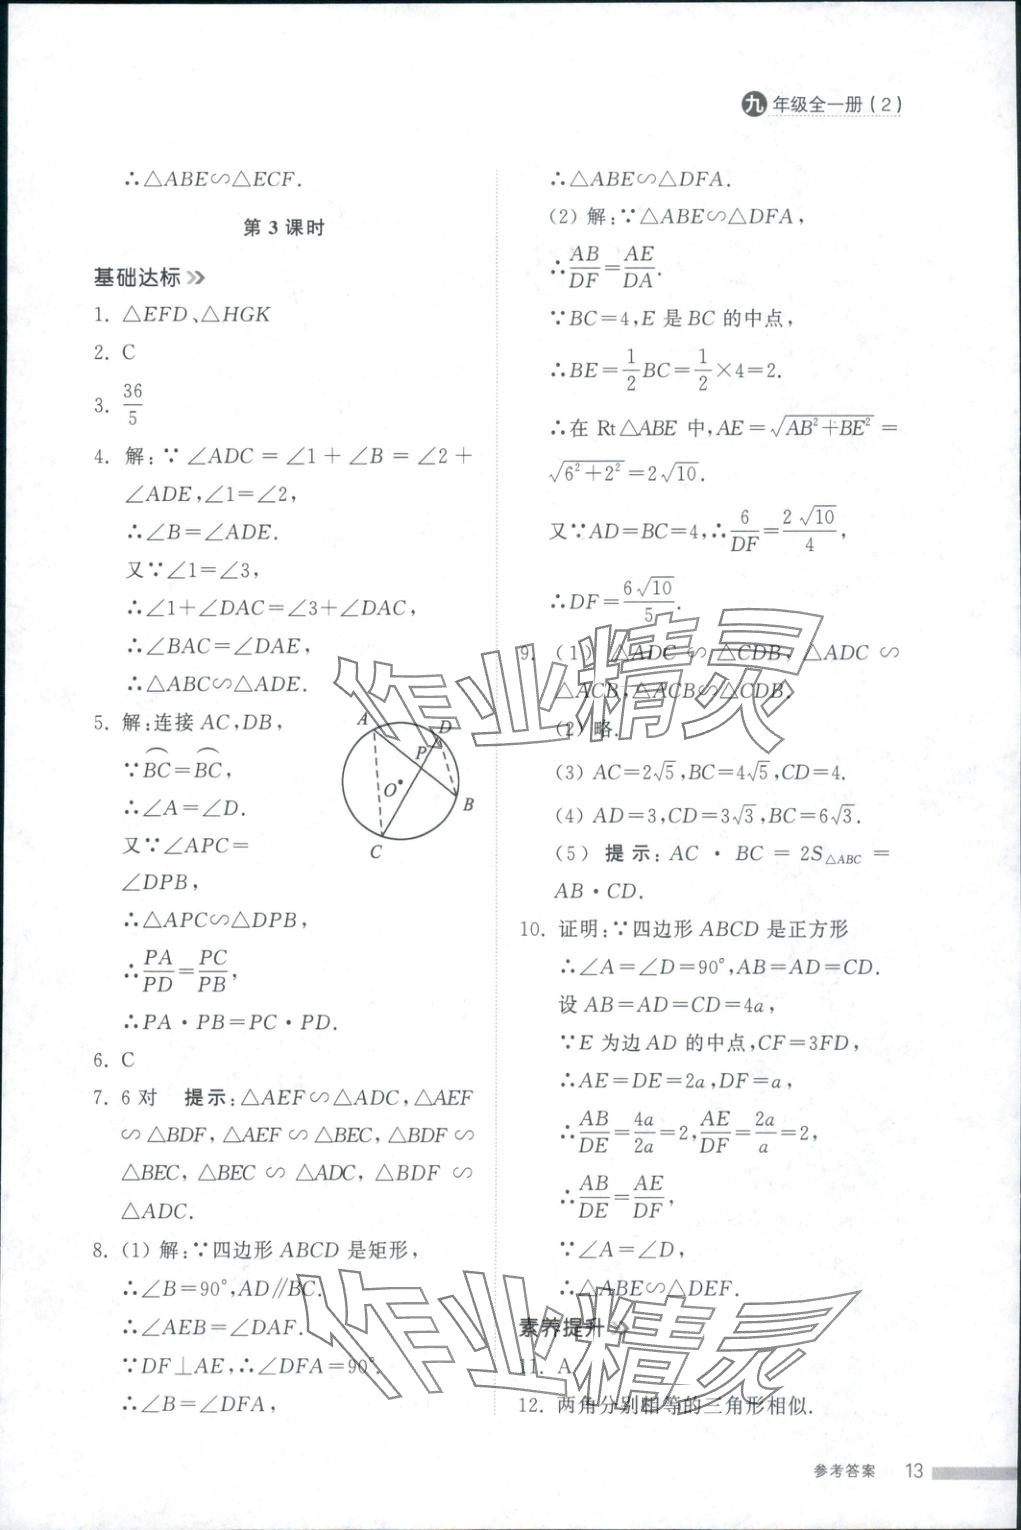 九年级全一册(2)
∴△ABE∽△ECF.
第3课时
基础达标
1. △EFD、△HGK
2. C
3. 36/5
4. 解:∵∠ADC=∠1+∠B=∠2+
∠ADE,∠1=∠2,
∴∠B=∠ADE.
又∵∠1=∠3,
∴∠1+∠DAC=∠3+∠DAC,
∴∠BAC=∠DAE.
∴△ABC∽△ADE.
5. 解:连接AC,DB,
∵⌒BC=⌒BC,
∴∠A=∠D.
又∵∠APC=
∠DPB,
∴△APC∽△DPB,
∴PA/PD=PC/PB,
∴PA·PB=PC·PD.
A
D
P
O
B
C
6. C
7. 6对 提示:△AEF∽△ADC,△AEF
∽△BDF,△AEF∽△BEC,△BDF∽
△BEC,△BEC∽△ADC,△BDF∽
△ADC.
8. (1)解:∵四边形ABCD是矩形,
∴∠B=90°,AD∥BC.
∴∠AEB=∠DAF.
∵DF⊥AE,∴∠DFA=90°.
∴∠B=∠DFA,
∴△ABE∽△DFA.
(2)解:∵△ABE∽△DFA,
∴AB/DF=AE/DA.
∵BC=4,E是BC的中点,
∴BE=1/2BC=1/2×4=2.
∴在Rt△ABE中,AE=√(AB²+BE²)=
√(6²+2²)=2√10.
又∵AD=BC=4,∴6/DF=2√10/4,
∴DF=6√10/5.
9. (1)△ADC∽△CDB,△ADC∽
△ACB,△ACB∽△CDB.
(2)略.
(3)AC=2√5,BC=4√5,CD=4.
(4)AD=3,CD=3√3,BC=6√3.
(5)提示:AC·BC=2S△ABC=
AB·CD.
10. 证明:∵四边形ABCD是正方形
∴∠A=∠D=90°,AB=AD=CD.
设AB=AD=CD=4a,
∵E为边AD的中点,CF=3FD,
∴AE=DE=2a,DF=a,
∴AB/DE=4a/2a=2,AE/DF=2a/a=2,
∴AB/DE=AE/DF,
∵∠A=∠D,
∴△ABE∽△DEF.
素养提升
11. A
12. 两角分别相等的三角形相似.
作业精灵
作业精灵
参考答案 13